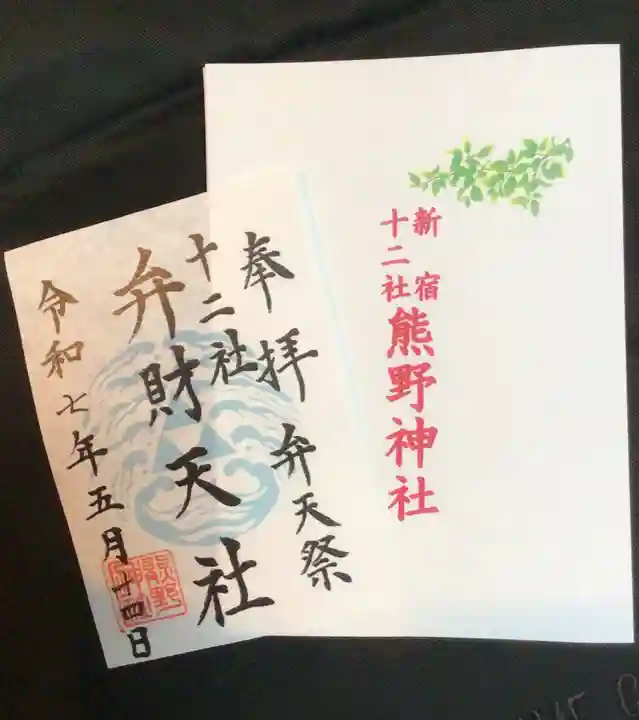 新宿
十二社
熊野神社
奉拝 弁天祭
十二社
弁財天社
令和七年五月十四日